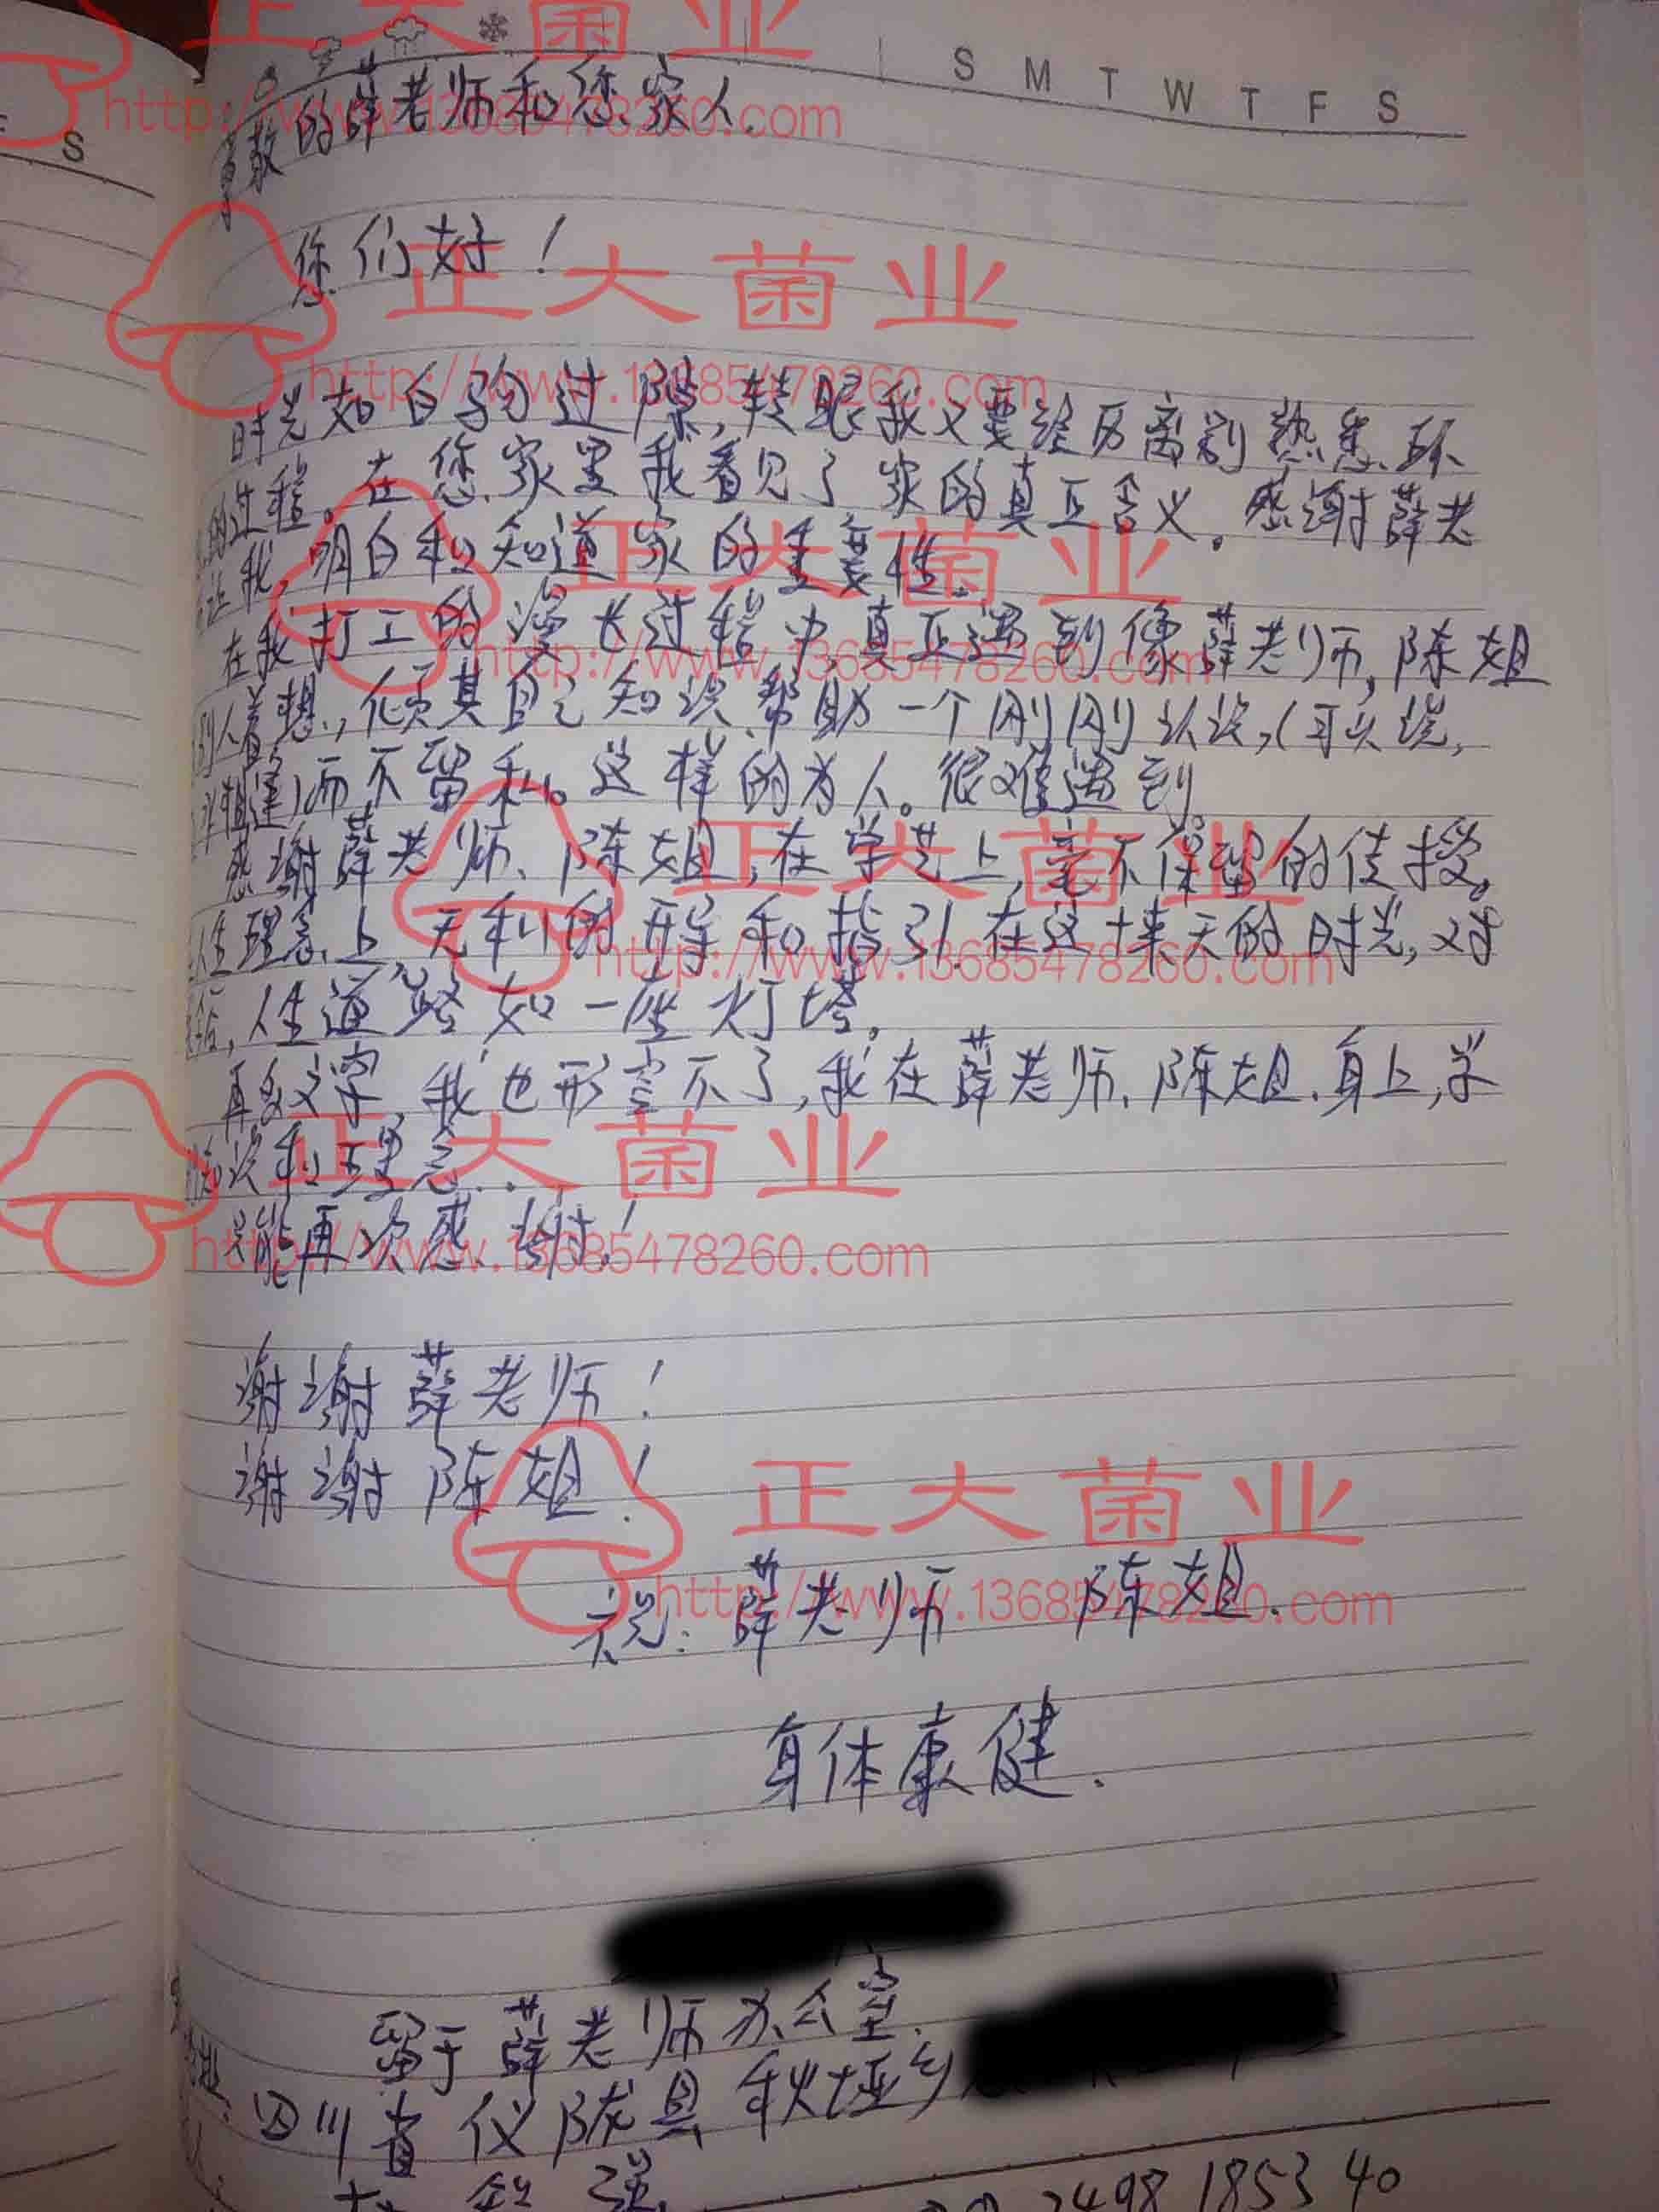 正大菌业
S M T W T F S
http://www.13685478260.com
尊敬的薛老师和您家人.
S
您们好！
正大菌业
http://www.13685478260.com
时光如白驹过隙，转眼我又要经历离别熟悉环
的过程。在您家里我看见了家的真正含义。感谢薛老
让我，明白和知道家的重要性.
正大菌业
在我打工的漫长过程中，真正遇到像薛老师，陈姐
http://www.13685478260.com
别人着想，倾其自己知识帮助一个刚刚认识，(可以说，
)而不留私。这样的为人。很难遇到。
正大菌业
感谢薛老师、陈姐，在学艺上，毫不保留的传授。
人生理念上，无私的开导和指引.在这十来天的时光，对
http://www.13685478260.com
人生道路如一座灯塔。
再多文字，我也形容不了，我在薛老师、陈姐、身上，学
知识和理念...
正大菌业
只能再次感谢！
http://www.13685478260.com
谢谢薛老师！
谢谢陈姐！
正大菌业
祝：薛老师 陈姐.
http://www.13685478260.com
身体康健.
留于薛老师办公室.
四川省仪陇县秋垭乡
2498185340